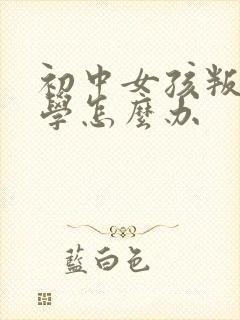 初中女孩叛
學怎麼办
藍白色